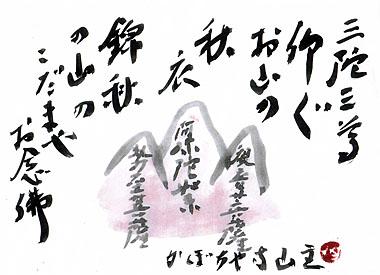 三陀三尊
仰ぐ
お山の
秋
衣
錦秋
の山の
こだまや
お念佛
観世音菩薩
阿弥陀如来
勢至菩薩
かぼちゃ寺山主